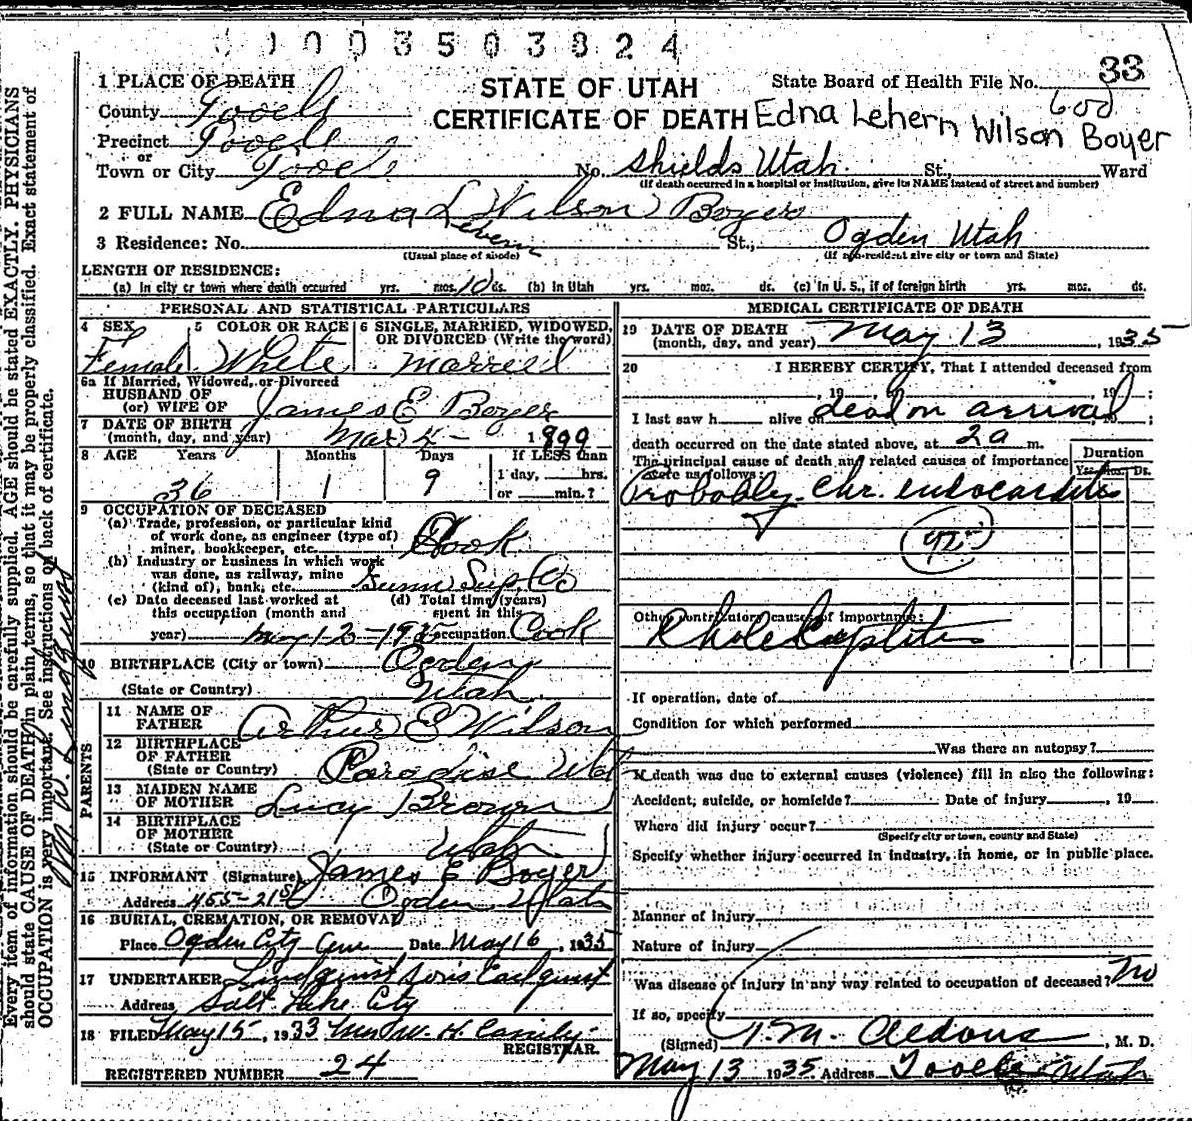 003503824
1 PLACE OF DEATH
STATE OF UTAH
CERTIFICATE OF DEATH
State Board of Health File No. 33
600
Edna Lehern Wilson Boyer
County Tooele
Precinct Tooele
or
Town or City Tooele No. Shields Utah. St., Ward
(If death occurred in a hospital or institution, give its NAME instead of street and number)
2 FULL NAME Edna L Wilson Boyer
3 Residence: No. St., Ogden Utah
(Usual place of abode) (If non-resident give city or town and State)
LENGTH OF RESIDENCE:
(a) In city or town where death occurred yrs. mos. 10 ds. (b) In Utah yrs. mos. ds. (c) In U. S., if of foreign birth yrs. mos. ds.
PERSONAL AND STATISTICAL PARTICULARS
4 SEX 5 COLOR OR RACE 6 SINGLE, MARRIED, WIDOWED, OR DIVORCED (Write the word)
Female White married
6a If Married, Widowed, or Divorced
HUSBAND OF
(or) WIFE OF James E Boyer
7 DATE OF BIRTH
(month, day, and year) Mar 4 - 1899
8 AGE Years Months Days If LESS than
1 day, hrs.
36 1 9 or min.?
9 OCCUPATION OF DECEASED
(a) Trade, profession, or particular kind
of work done, as engineer (type of)
miner, bookkeeper, etc. Cook
(b) Industry or business in which work
was done, as railway, mine
(kind of), bank, etc. Sup. Co
(c) Date deceased last worked at (d) Total time (years)
this occupation (month and spent in this
year) May 12-1935 occupation Cook
10 BIRTHPLACE (City or town) Ogden
(State or Country) Utah
PARENTS
11 NAME OF
FATHER Arthur E Wilson
12 BIRTHPLACE
OF FATHER
(State or Country) Paradise Utah
13 MAIDEN NAME
OF MOTHER Lucy Brown
14 BIRTHPLACE
OF MOTHER
(State or Country) Utah
15 INFORMANT (Signature) James E Boyer
Address 455-21st Ogden Utah
16 BURIAL, CREMATION, OR REMOVAL
Place Ogden City Cem Date May 16, 1935
17 UNDERTAKER Lindquist Sons
Address Salt Lake City
18 FILED May 15, 1933 Mrs W. H.
REGISTRAR.
REGISTERED NUMBER 24
MEDICAL CERTIFICATE OF DEATH
19 DATE OF DEATH
(month, day, and year) May 13, 1935
20 I HEREBY CERTIFY, That I attended deceased from
, 19 , 19 ;
I last saw h alive on dead on arrival, 19 ;
death occurred on the date stated above, at 2a m.
The principal cause of death and related causes of importance
were as follows: Duration
Yrs. Mos. Ds.
Probably Chr. endocarditis
Other contributory causes of importance:
If operation, date of
Condition for which performed
Was there an autopsy?
If death was due to external causes (violence) fill in also the following:
Accident, suicide, or homicide? Date of injury , 19
Where did injury occur?
(Specify city or town, county and State)
Specify whether injury occurred in industry, in home, or in public place.
Manner of injury
Nature of injury
Was disease or injury in any way related to occupation of deceased? No
If so, specify
(Signed) , M. D.
May 13 1935 Address Tooele Utah
Every item of information should be carefully supplied. AGE should be stated EXACTLY. PHYSICIANS
should state CAUSE OF DEATH in plain terms, so that it may be properly classified. Exact statement of
OCCUPATION is very important. See instructions on back of certificate.